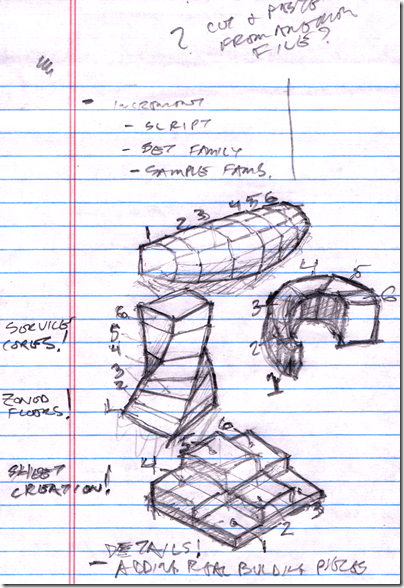 ? CUT & PASTE
FROM ANOTHER
FILE?
- INCREMENT
- SCRIPT
- SET FAMILY
- SAMPLE FAMS.
1 2 3 4 5 6
6
5
4
3
2
1
1 2 3 4 5 6
SERVICE
CORES!
ZONED
FLOORS!
SHEET
CREATION!
4 5 6
1 2 3
DETAILS!
- ADDING REAL BUILDING PIECES